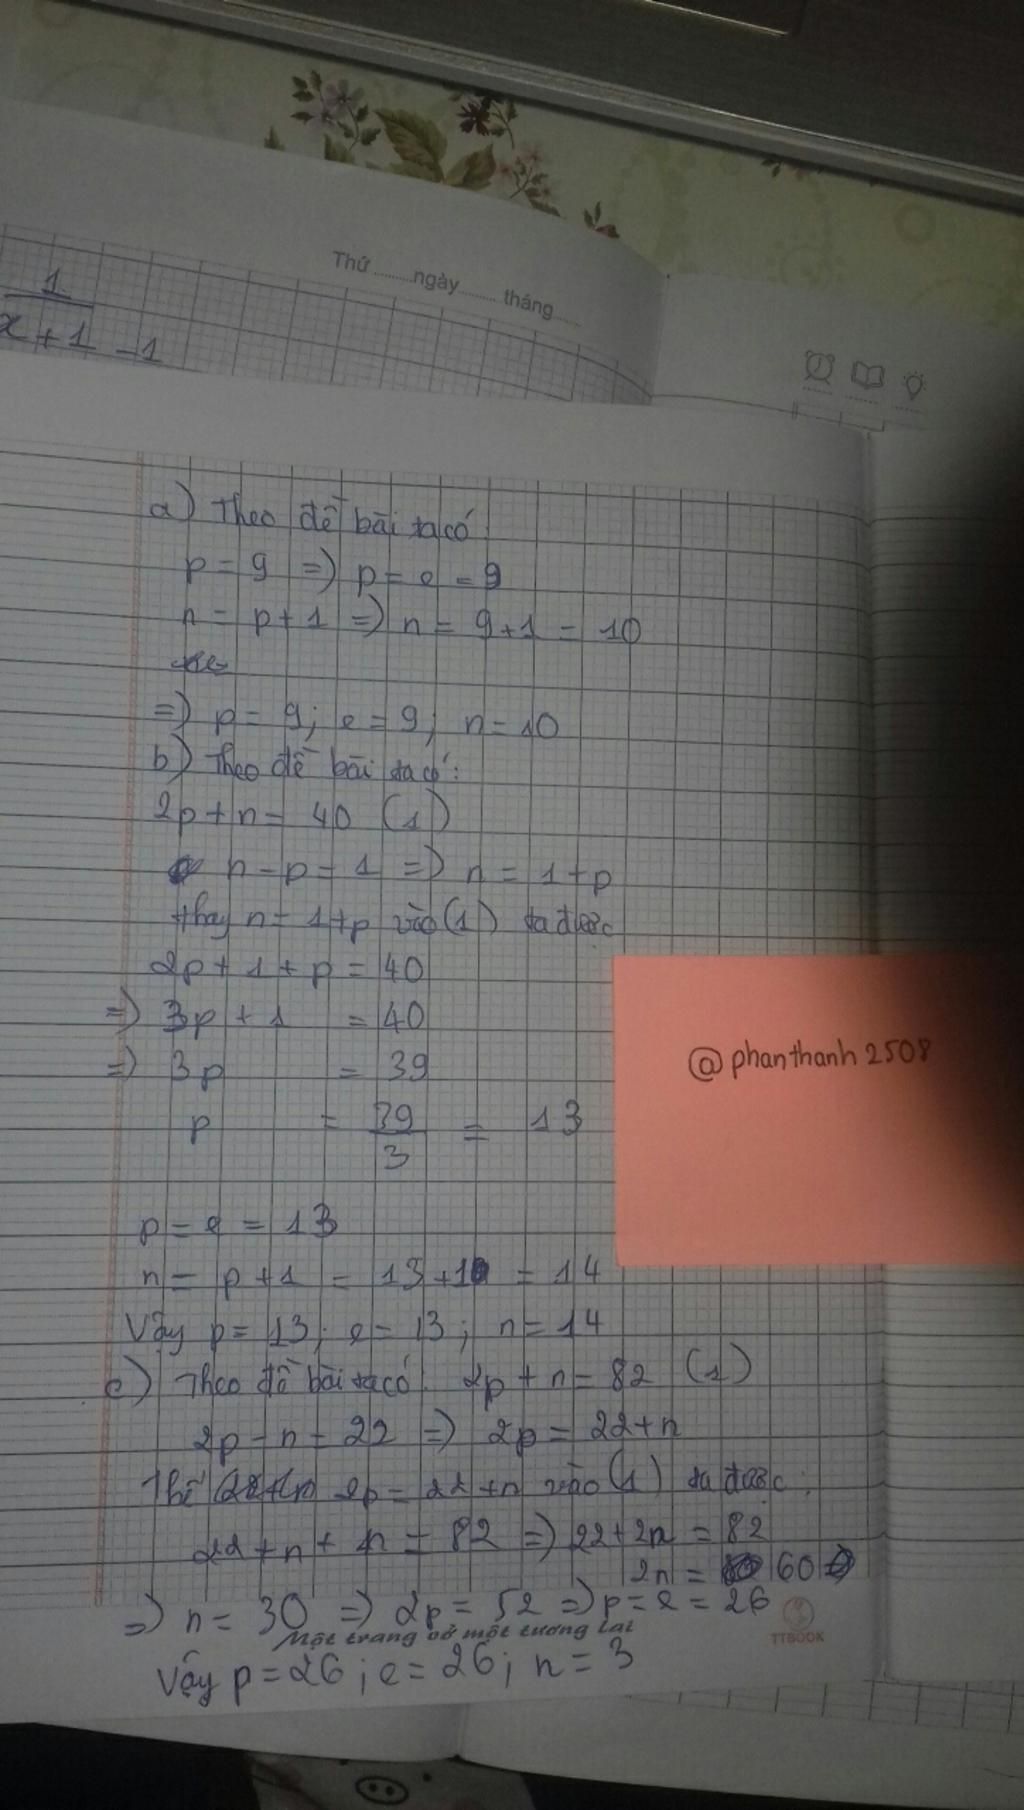 Thứ ........ ngày ........ tháng .....
1
x + 1 - 1
a) Theo đề bài ta có
p = 9 => p = e = 9
n = p + 1 => n = 9 + 1 = 10
=> p = 9; e = 9; n = 10
b) Theo đề bài ta có:
2p + n = 40 (1)
n - p = 1 => n = 1 + p
thay n = 1 + p vào (1) ta được
2p + 1 + p = 40
=> 3p + 1 = 40
=> 3p = 39
p = 39/3 = 13
@phanthanh2508
p = e = 13
n = p + 1 = 13 + 1 = 14
Vậy p = 13; e = 13; n = 14
c) Theo đề bài ta có: 2p + n = 82 (1)
2p - n = 22 => 2p = 22 + n
Thế 2p = 22 + n vào (1) ta được:
22 + n + n = 82 => 22 + 2n = 82
2n = 60
=> n = 30 => 2p = 52 => p = e = 26
Một trang vở một tương lai
TTBOOK
Vậy p = 26; e = 26; n = 3